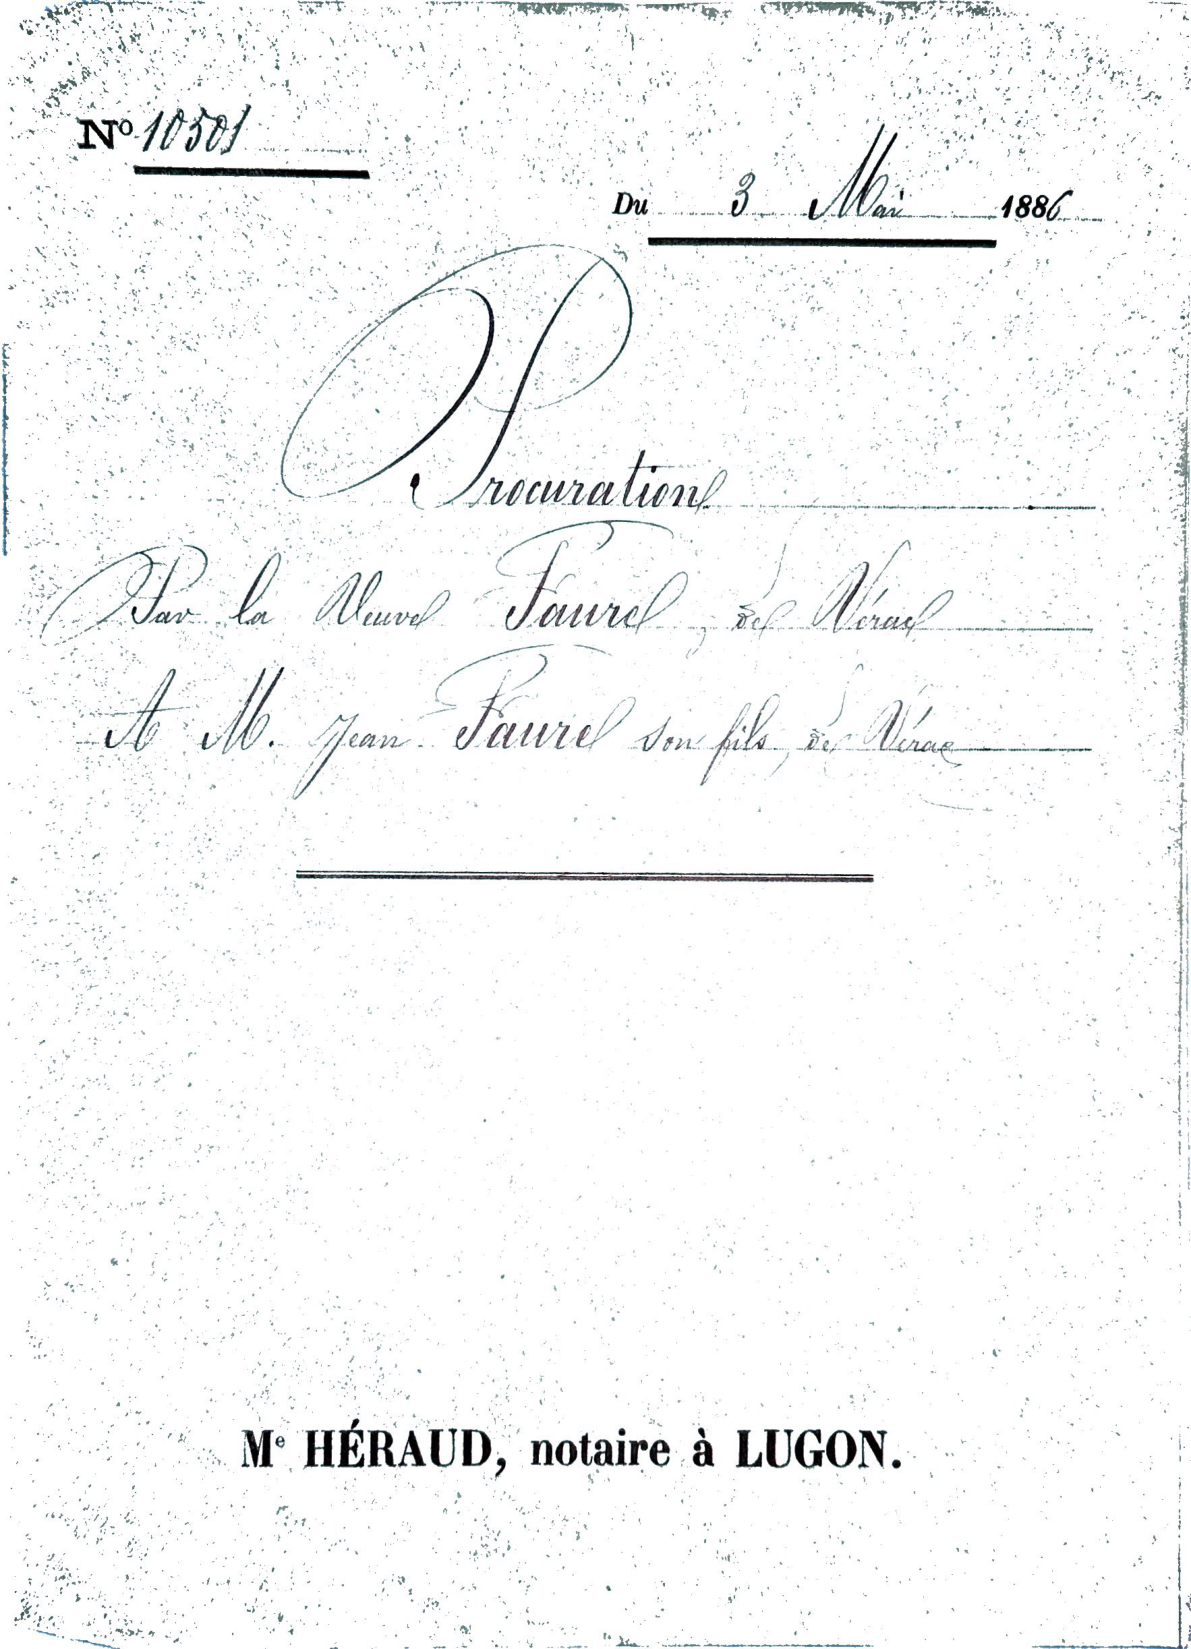 Nº 10501
Du 3 Mai 1886
Procuration
Par la Veuve Faure, de Vérac
A M. Jean Faure son fils, de Vérac
Mᵉ HÉRAUD, notaire à LUGON.